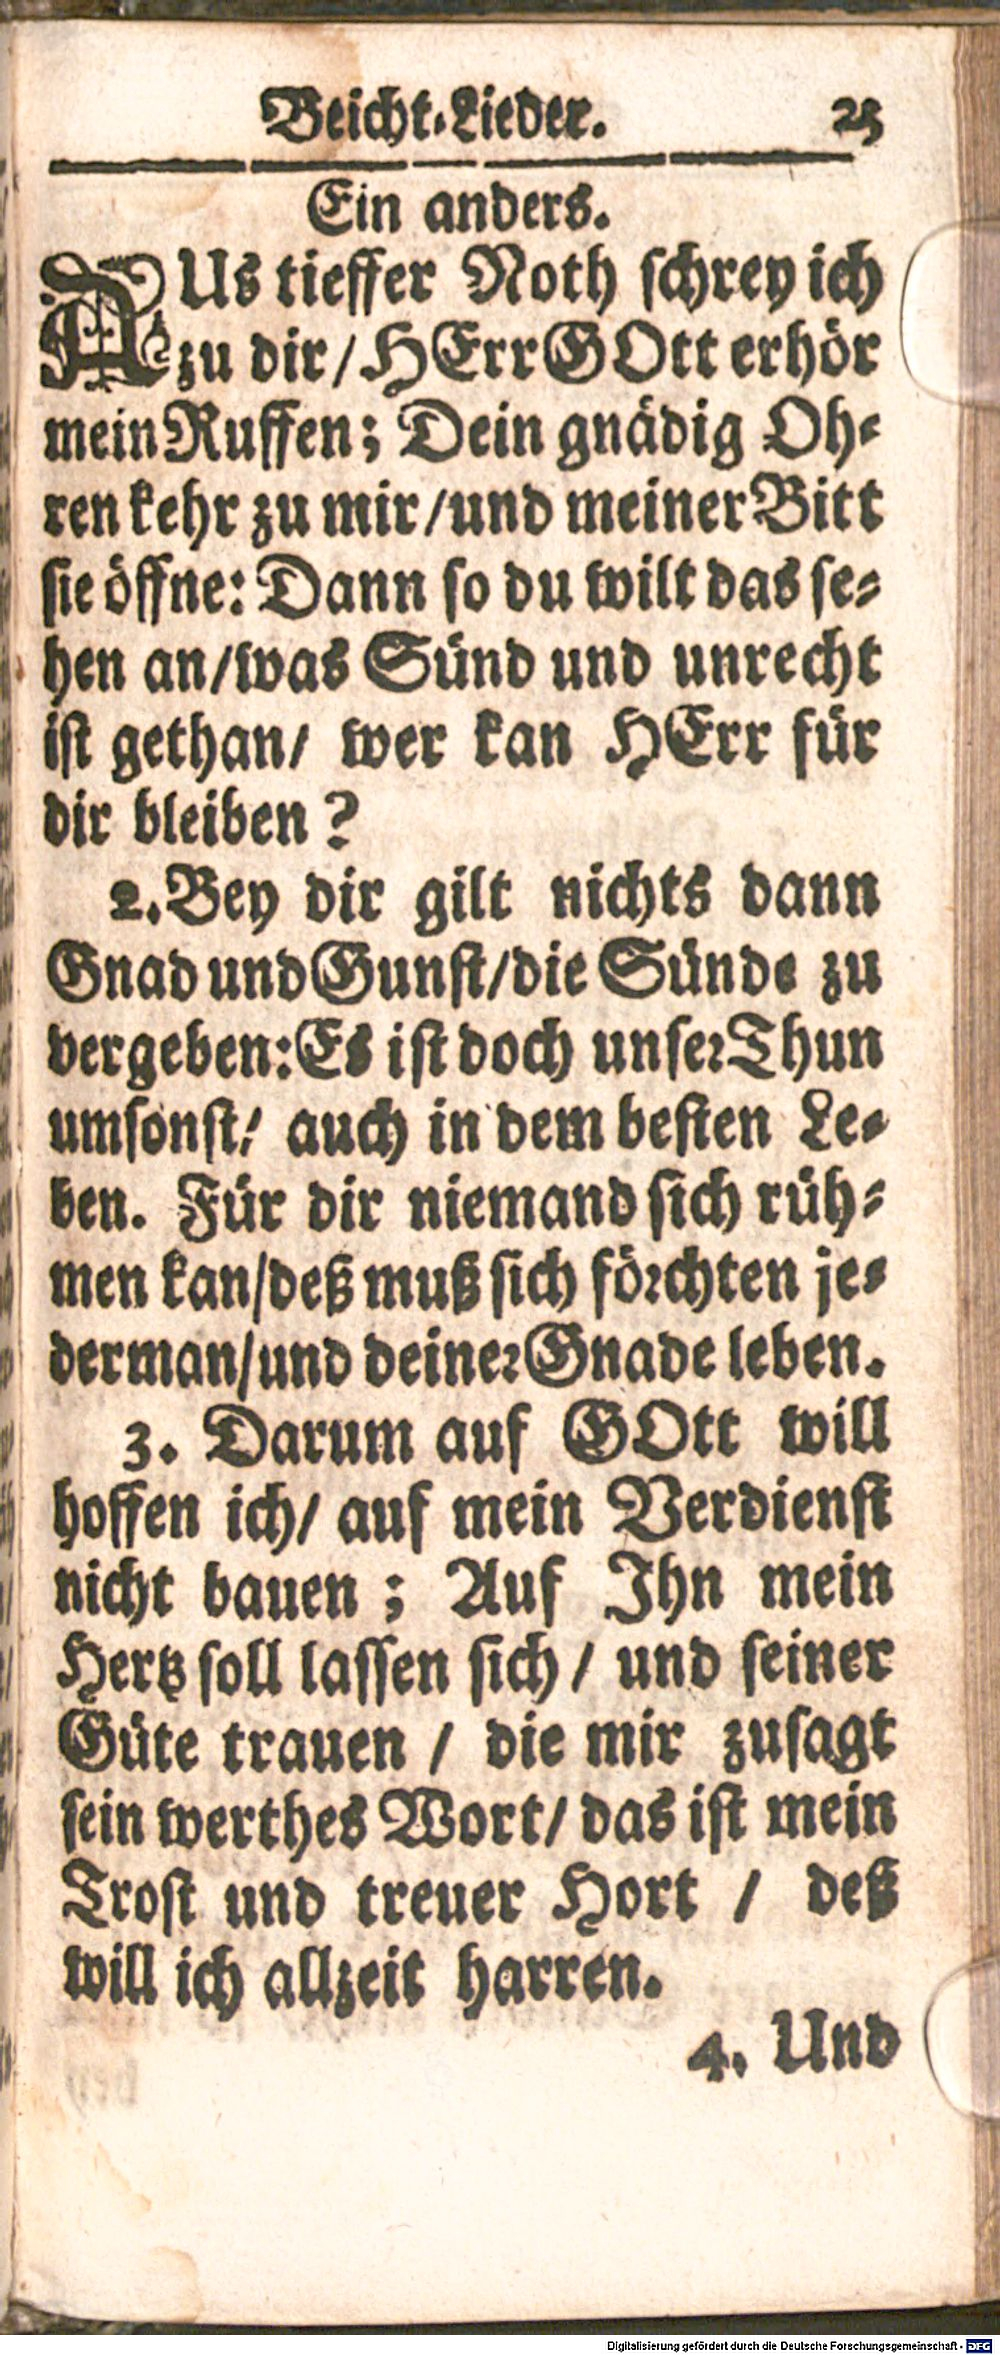 Beicht-Lieder. 25
Ein anders.
AUs tieffer Noth schrey ich
zu dir / HErr GOtt erhör
mein Ruffen; Dein gnädig Oh-
ren kehr zu mir / und meiner Bitt
sie öffne: Dann so du wilt das se-
hen an / was Sünd und unrecht
ist gethan / wer kan HErr für
dir bleiben?
2. Bey dir gilt nichts dann
Gnad und Gunst / die Sünde zu
vergeben: Es ist doch unser Thun
umsonst / auch in dem besten Le-
ben. Für dir niemand sich rüh-
men kan / deß muß sich förchten je-
derman / und deiner Gnade leben.
3. Darum auf GOtt will
hoffen ich / auf mein Verdienst
nicht bauen; Auf Ihn mein
Hertz soll lassen sich / und seiner
Güte trauen / die mir zusagt
sein werthes Wort / das ist mein
Trost und treuer Hort / deß
will ich allzeit harren.
4. Und
Digitalisierung gefördert durch die Deutsche Forschungsgemeinschaft - DFG